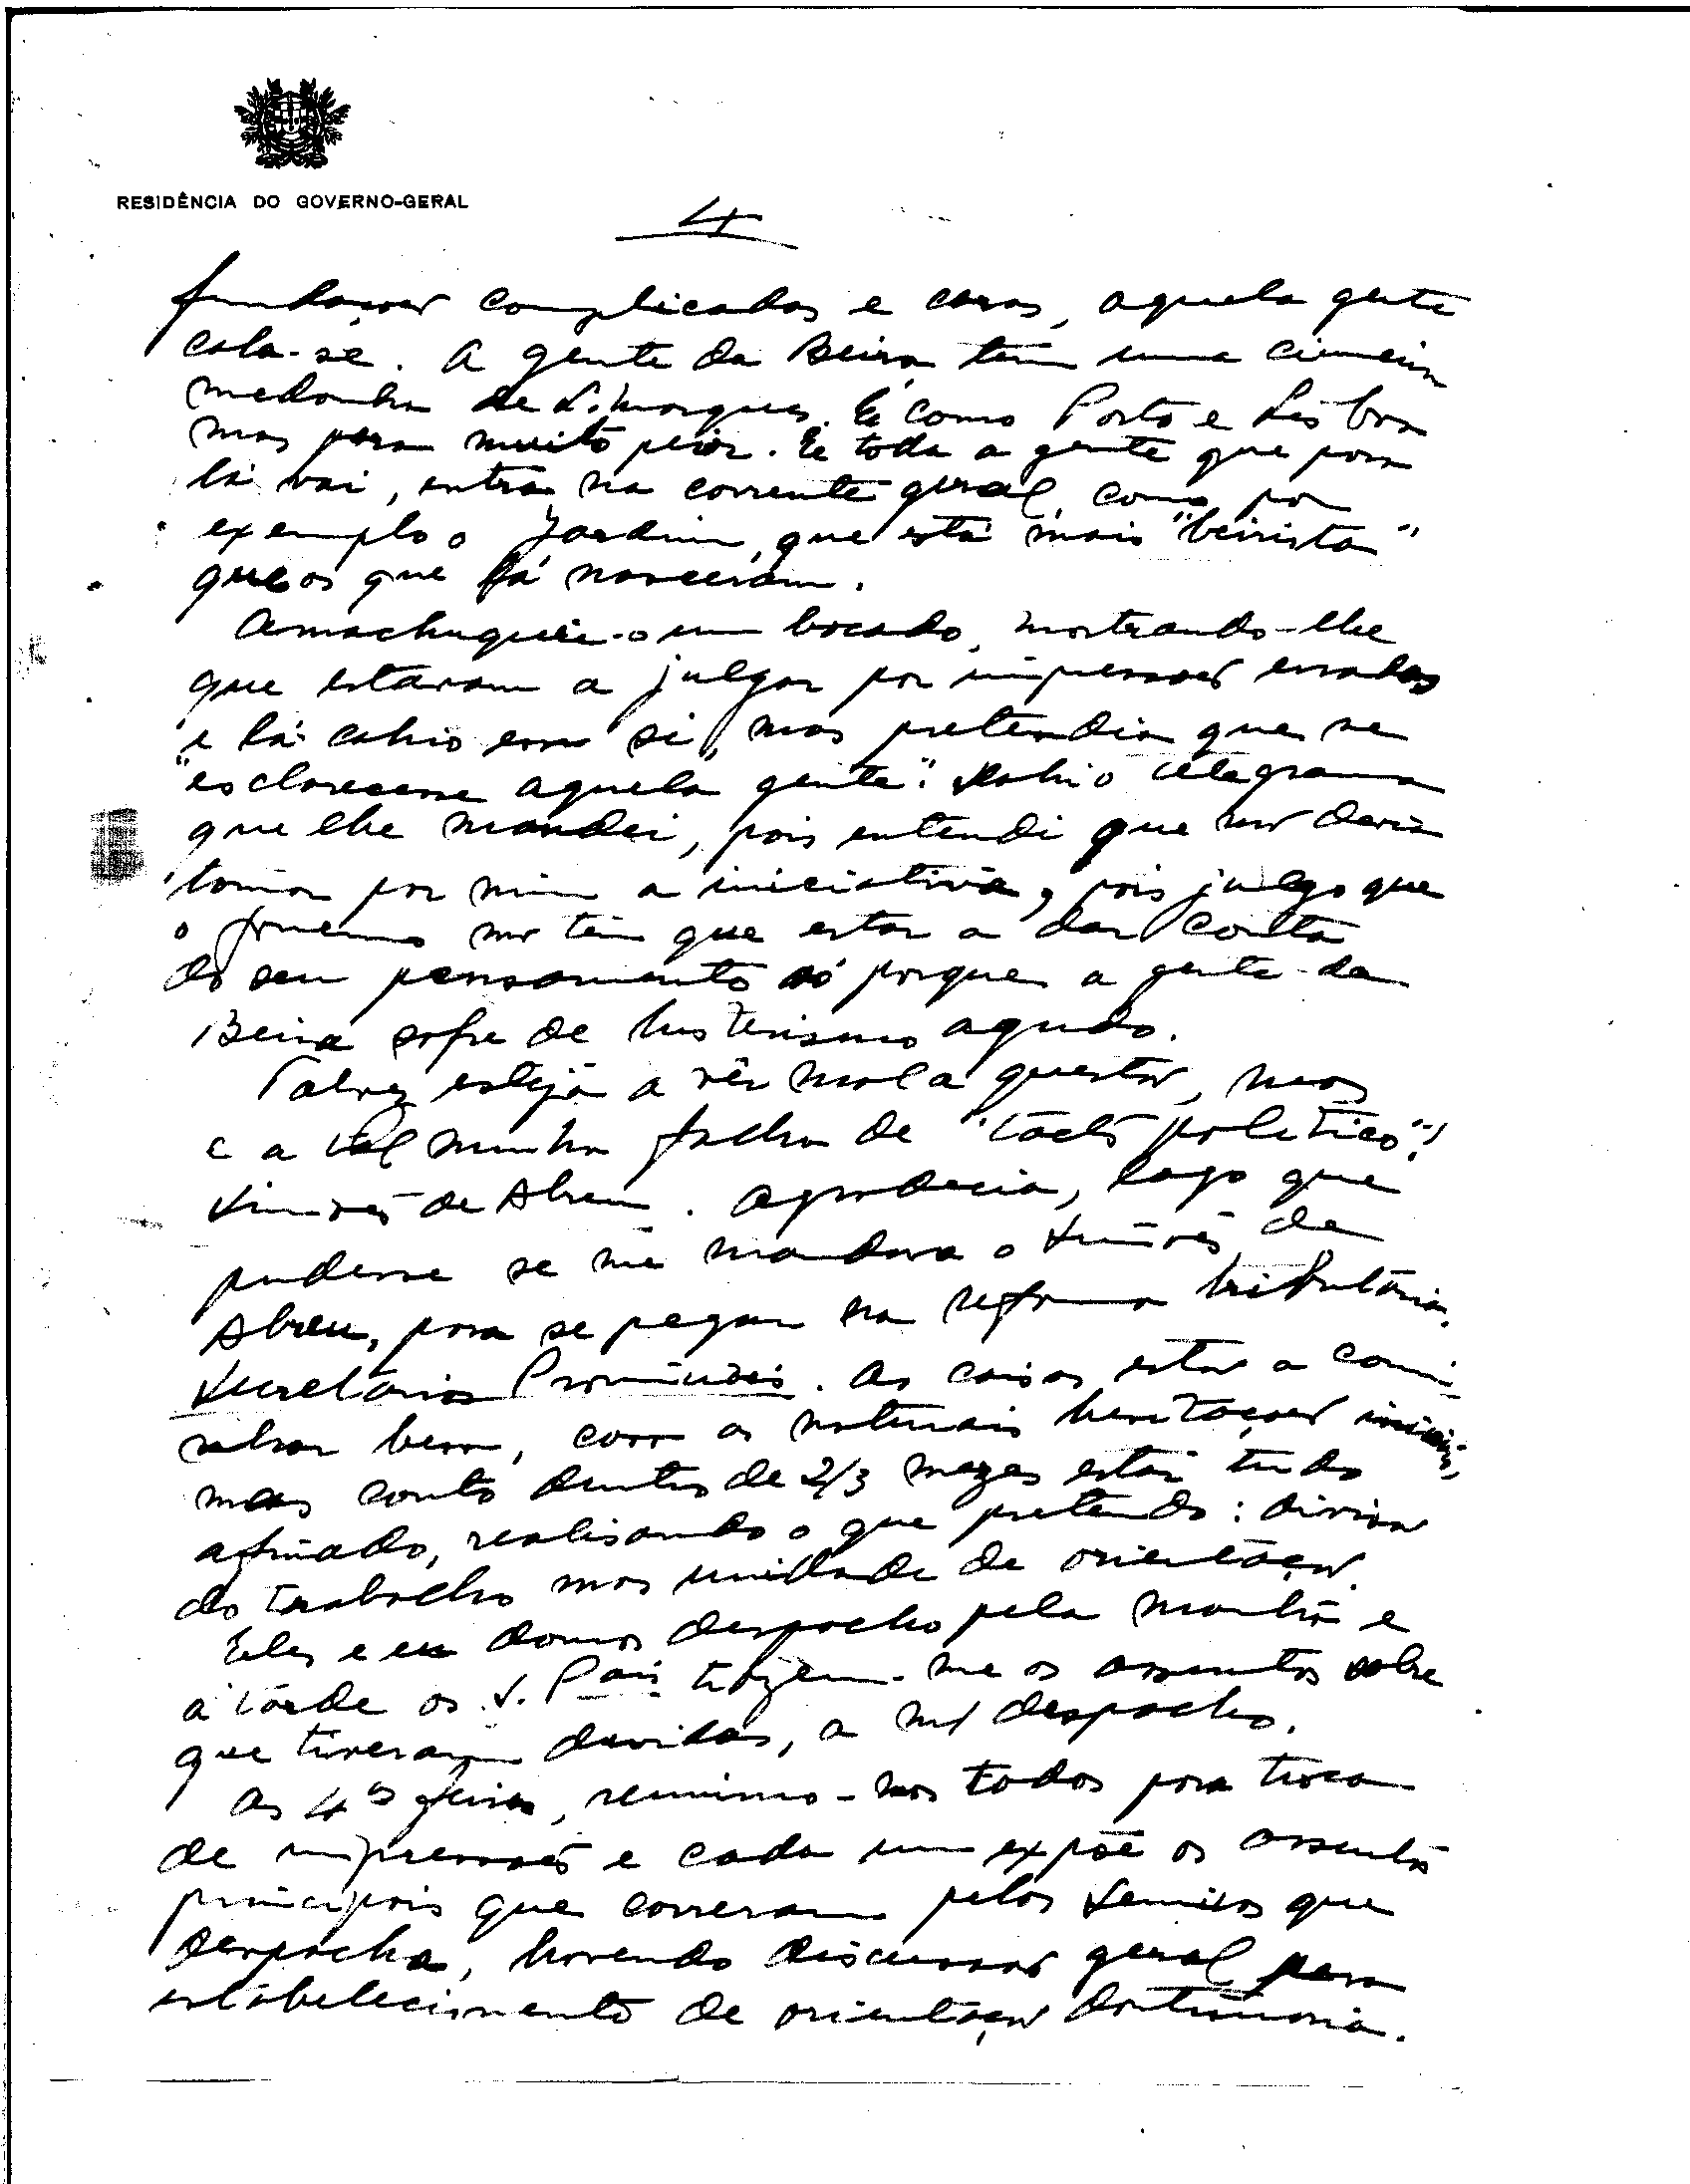 RESIDÊNCIA DO GOVERNO-GERAL
4
fundações complicadas e caras, aquela gente
cala-se. A gente da Beira tem uma ciumeira
medonha de L. Marques. É como Porto e Lisboa
mas para muito peior. E toda a gente que para
lá vai, entra na corrente geral, como por
exemplo o Jardim, que está mais "beirista"
que os que lá nasceram.
Amachuquei-o um bocado, mostrando-lhe
que estavam a julgar por impressões erradas
e lá cahio em si, mas pretendia que se
"esclarecesse aquela gente". Sahio telegrama
que lhe mandei, pois entendi que não devia
tomar por mim a iniciativa, pois julgo que
o Governo não tem que estar a dar conta
do seu pensamento só porque a gente da
Beira sofre de histerismo agudo.
Talvez esteja a vêr mal a questão, mas
é a tal minha falha de "tacto político"!
Simões de Abreu. Agradecia, logo que
pudesse se me mandava o Simões de
Abreu, para se pegar na reforma tributária.
Secretários Provinciais. As coisas estão a cami-
nhar bem, com as naturais hesitações iniciais,
mas conto dentro de 2/3 mezes estar tudo
afinado, realisando o que pretendo: divisão
do trabalho mas unidade de orientação.
Eles e eu damos despacho pela manhã e
à tarde os S. Pais trazem-me os assuntos sobre
que tiveram duvidas, a m/ despacho.
As 4as feiras, reunimo-nos todos para troca
de impressões e cada um expõe os assuntos
principais que correram pelos Serviços que
despacha, havendo discussão geral para
estabelecimento de orientação doutrinária.